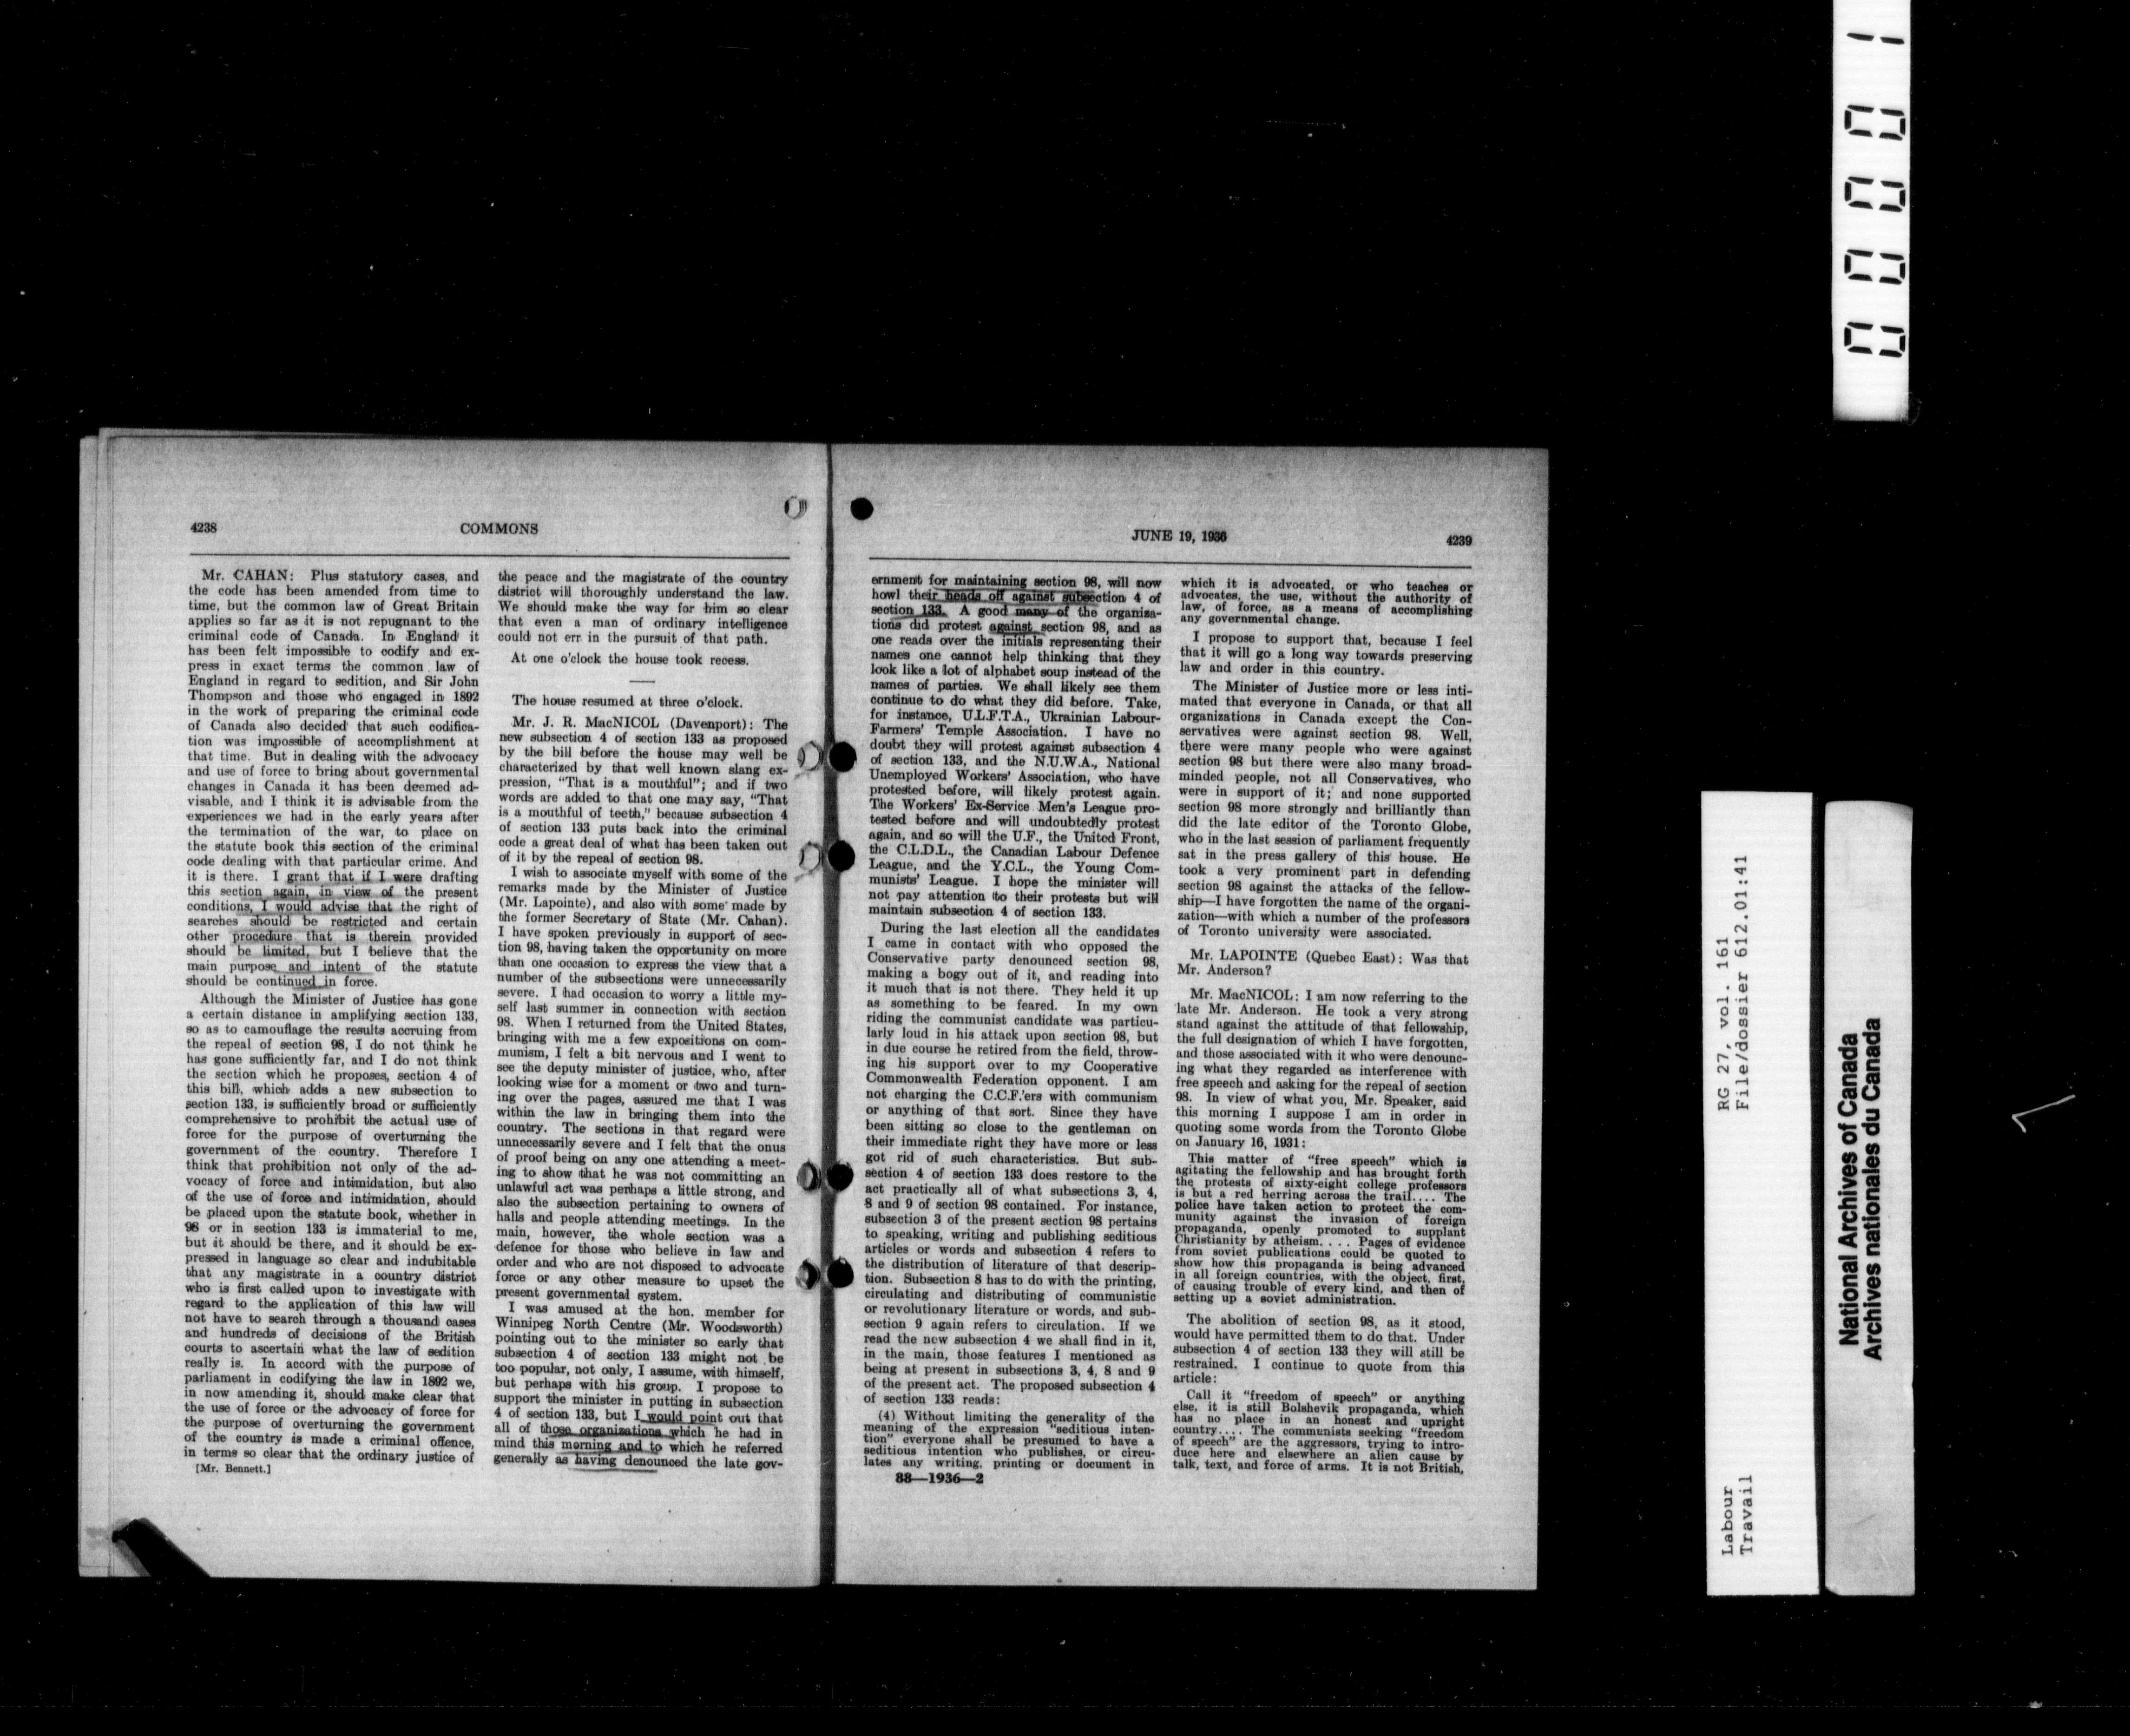 4238
COMMONS
Mr. CAHAN: Plus statutory cases, and
the code has been amended from time to
time, but the common law of Great Britain
applies so far as it is not repugnant to the
criminal code of Canada. In England it
has been felt impossible to codify and ex-
press in exact terms the common law of
England in regard to sedition, and Sir John
Thompson and those who engaged in 1892
in the work of preparing the criminal code
of Canada also decided that such codifica-
tion was impossible of accomplishment at
that time. But in dealing with the advocacy
and use of force to bring about governmental
changes in Canada it has been deemed ad-
visable, and I think it is advisable from the
experiences we had in the early years after
the termination of the war, to place on
the statute book this section of the criminal
code dealing with that particular crime. And
it is there. I grant that if I were drafting
this section again, in view of the present
conditions, I would advise that the right of
searches should be restricted and certain
other procedure that is therein provided
should be limited, but I believe that the
main purpose and intent of the statute
should be continued in force.
Although the Minister of Justice has gone
a certain distance in amplifying section 133,
so as to camouflage the results accruing from
the repeal of section 98, I do not think he
has gone sufficiently far, and I do not think
the section which he proposes, section 4 of
this bill, which adds a new subsection to
section 133, is sufficiently broad or sufficiently
comprehensive to prohibit the actual use of
force for the purpose of overturning the
government of the country. Therefore I
think that prohibition not only of the ad-
vocacy of force and intimidation, but also
of the use of force and intimidation, should
be placed upon the statute book, whether in
98 or in section 133 is immaterial to me,
but it should be there, and it should be ex-
pressed in language so clear and indubitable
that any magistrate in a country district
who is first called upon to investigate with
regard to the application of this law will
not have to search through a thousand cases
and hundreds of decisions of the British
courts to ascertain what the law of sedition
really is. In accord with the purpose of
parliament in codifying the law in 1892 we,
in now amending it, should make clear that
the use of force or the advocacy of force for
the purpose of overturning the government
of the country is made a criminal offence,
in terms so clear that the ordinary justice of
[Mr. Bennett.]
the peace and the magistrate of the country
district will thoroughly understand the law.
We should make the way for him so clear
that even a man of ordinary intelligence
could not err in the pursuit of that path.
At one o'clock the house took recess.
The house resumed at three o'clock.
Mr. J. R. MacNICOL (Davenport): The
new subsection 4 of section 133 as proposed
by the bill before the house may well be
characterized by that well known slang ex-
pression, "That is a mouthful"; and if two
words are added to that one may say, "That
is a mouthful of teeth," because subsection 4
of section 133 puts back into the criminal
code a great deal of what has been taken out
of it by the repeal of section 98.
I wish to associate myself with some of the
remarks made by the Minister of Justice
(Mr. Lapointe), and also with some made by
the former Secretary of State (Mr. Cahan).
I have spoken previously in support of sec-
tion 98, having taken the opportunity on more
than one occasion to express the view that a
number of the subsections were unnecessarily
severe. I had occasion to worry a little my-
self last summer in connection with section
98. When I returned from the United States,
bringing with me a few expositions on com-
munism, I felt a bit nervous and I went to
see the deputy minister of justice, who, after
looking wise for a moment or two and turn-
ing over the pages, assured me that I was
within the law in bringing them into the
country. The sections in that regard were
unnecessarily severe and I felt that the onus
of proof being on any one attending a meet-
ing to show that he was not committing an
unlawful act was perhaps a little strong, and
also the subsection pertaining to owners of
halls and people attending meetings. In the
main, however, the whole section was a
defence for those who believe in law and
order and who are not disposed to advocate
force or any other measure to upset the
present governmental system.
I was amused at the hon. member for
Winnipeg North Centre (Mr. Woodsworth)
pointing out to the minister so early that
subsection 4 of section 133 might not be
too popular, not only, I assume, with himself,
but perhaps with his group. I propose to
support the minister in putting in subsection
4 of section 133, but I would point out that
all of those organizations which he had in
mind this morning and to which he referred
generally as having denounced the late gov-
JUNE 19, 1936
4239
ernment for maintaining section 98, will now
howl their heads off against subsection 4 of
section 133. A good many of the organiza-
tions did protest against section 98, and as
one reads over the initials representing their
names one cannot help thinking that they
look like a lot of alphabet soup instead of the
names of parties. We shall likely see them
continue to do what they did before. Take,
for instance, U.L.F.T.A., Ukrainian Labour-
Farmers' Temple Association. I have no
doubt they will protest against subsection 4
of section 133, and the N.U.W.A., National
Unemployed Workers' Association, who have
protested before, will likely protest again.
The Workers' Ex-Service Men's League pro-
tested before and will undoubtedly protest
again, and so will the U.F., the United Front,
the C.L.D.L., the Canadian Labour Defence
League, and the Y.C.L., the Young Com-
munists' League. I hope the minister will
not pay attention to their protests but will
maintain subsection 4 of section 133.
During the last election all the candidates
I came in contact with who opposed the
Conservative party denounced section 98,
making a bogy out of it, and reading into
it much that is not there. They held it up
as something to be feared. In my own
riding the communist candidate was particu-
larly loud in his attack upon section 98, but
in due course he retired from the field, throw-
ing his support over to my Cooperative
Commonwealth Federation opponent. I am
not charging the C.C.F.'ers with communism
or anything of that sort. Since they have
been sitting so close to the gentleman on
their immediate right they have more or less
got rid of such characteristics. But sub-
section 4 of section 133 does restore to the
act practically all of what subsections 3, 4,
8 and 9 of section 98 contained. For instance,
subsection 3 of the present section 98 pertains
to speaking, writing and publishing seditious
articles or words and subsection 4 refers to
the distribution of literature of that descrip-
tion. Subsection 8 has to do with the printing,
circulating and distributing of communistic
or revolutionary literature or words, and sub-
section 9 again refers to circulation. If we
read the new subsection 4 we shall find in it,
in the main, those features I mentioned as
being at present in subsections 3, 4, 8 and 9
of the present act. The proposed subsection 4
of section 133 reads:
(4) Without limiting the generality of the
meaning of the expression "seditious inten-
tion" everyone shall be presumed to have a
seditious intention who publishes, or circu-
lates any writing, printing or document in
88—1936—2
which it is advocated, or who teaches or
advocates, the use, without the authority of
law, of force, as a means of accomplishing
any governmental change.
I propose to support that, because I feel
that it will go a long way towards preserving
law and order in this country.
The Minister of Justice more or less inti-
mated that everyone in Canada, or that all
organizations in Canada except the Con-
servatives were against section 98. Well,
there were many people who were against
section 98 but there were also many broad-
minded people, not all Conservatives, who
were in support of it; and none supported
section 98 more strongly and brilliantly than
did the late editor of the Toronto Globe,
who in the last session of parliament frequently
sat in the press gallery of this house. He
took a very prominent part in defending
section 98 against the attacks of the fellow-
ship—I have forgotten the name of the organi-
zation—with which a number of the professors
of Toronto university were associated.
Mr. LAPOINTE (Quebec East): Was that
Mr. Anderson?
Mr. MacNICOL: I am now referring to the
late Mr. Anderson. He took a very strong
stand against the attitude of that fellowship,
the full designation of which I have forgotten,
and those associated with it who were denounc-
ing what they regarded as interference with
free speech and asking for the repeal of section
98. In view of what you, Mr. Speaker, said
this morning I suppose I am in order in
quoting some words from the Toronto Globe
on January 16, 1931:
This matter of "free speech" which is
agitating the fellowship and has brought forth
the protests of sixty-eight college professors
is but a red herring across the trail.... The
police have taken action to protect the com-
munity against the invasion of foreign
propaganda, openly promoted to supplant
Christianity by atheism.... Pages of evidence
from soviet publications could be quoted to
show how this propaganda is being advanced
in all foreign countries, with the object, first,
of causing trouble of every kind, and then of
setting up a soviet administration.
The abolition of section 98, as it stood,
would have permitted them to do that. Under
subsection 4 of section 133 they will still be
restrained. I continue to quote from this
article:
Call it "freedom of speech" or anything
else, it is still Bolshevik propaganda, which
has no place in an honest and upright
country.... The communists seeking "freedom
of speech" are the aggressors, trying to intro-
duce here and elsewhere an alien cause by
talk, text, and force of arms. It is not British,
00001
Labour
Travail
RG 27, vol. 161
File/dossier 612.01:41
National Archives of Canada
Archives nationales du Canada